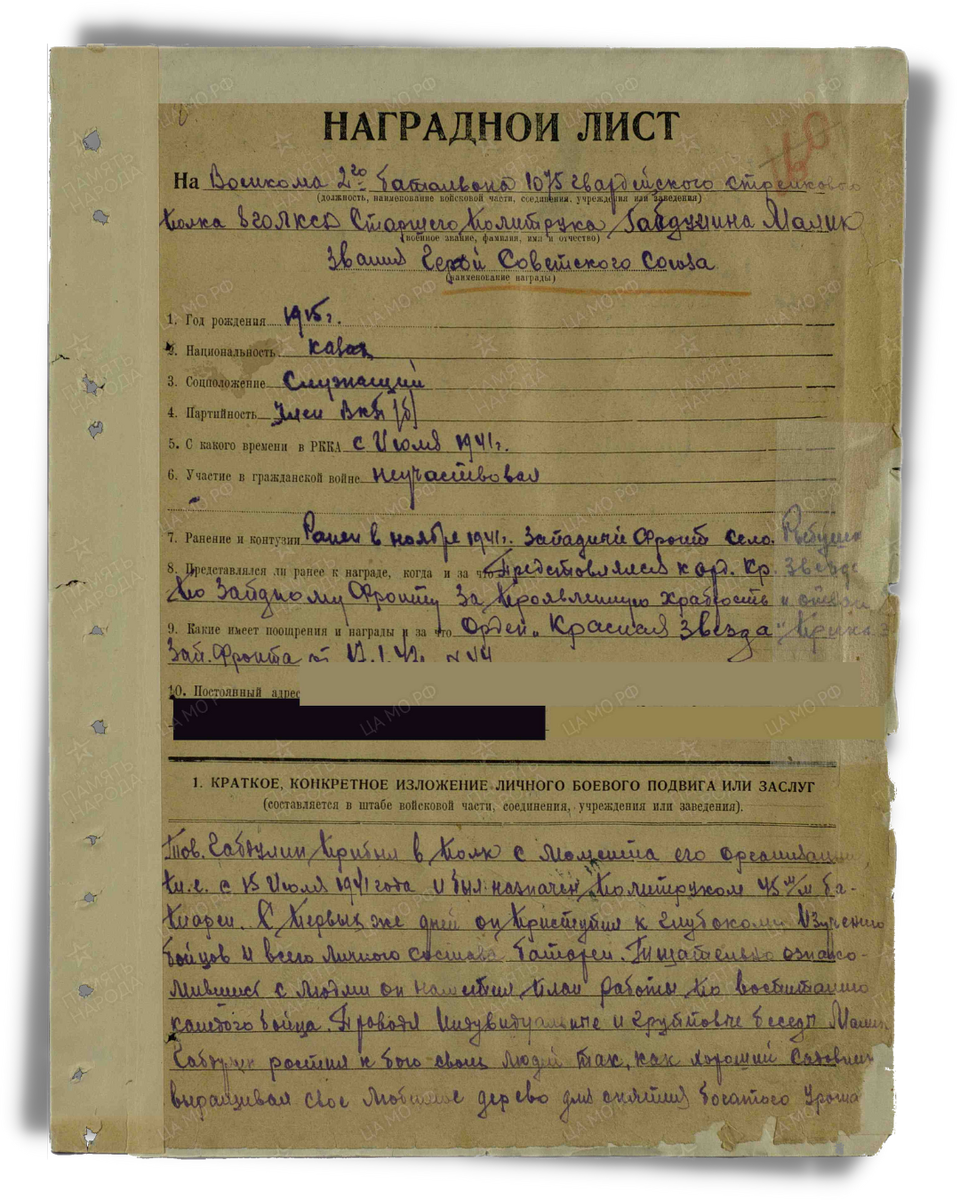 НАГРАДНОЙ ЛИСТ
60
На Военкома 2го батальвона 1075 гвардейского стрелкового
(должность, наименование войсковой части, соединения, учреждения или заведения)
полка 8 Старшего политрука Габдулина Малик
(военное звание, фамилия, имя и отчество)
Звания Герой Советского Союза
(наименование награды)
1. Год рождения 1915г.
2. Национальность казах
3. Соцположение Служащий
4. Партийность Член ВКП(б)
5. С какого времени в РККА с Июля 1941г.
6. Участие в гражданской войне неучаствовал
7. Ранение и контузии Ранен в ноябре 1941г. Западный Фронт село.
8. Представлялся ли ранее к награде, когда и за что Представлялся к орд. Кр. Звезда
По Западному Фронту За проявленную храбрость и
9. Какие имеет поощрения и награды и за что Орден „Красная Звезда"
Зап. Фронта от 17.1.42г. №
10. Постоянный адрес
1. КРАТКОЕ, КОНКРЕТНОЕ ИЗЛОЖЕНИЕ ЛИЧНОГО БОЕВОГО ПОДВИГА ИЛИ ЗАСЛУГ
(составляется в штабе войсковой части, соединения, учреждения или заведения).
Тов. Габдулин прибыл в полк с момента его организации
т.е. с 15 Июля 1941 года и был назначен политруком 45 м/м ба-
тареи. С первых же дней он приступил к глубокому изучению
бойцов и всего личного состава батареи. Тщательно ознако-
мившись с людми он наметил план работы по воспитанию
каждого бойца. Проводя Индувидуальные и групповые беседы Малик
Габдулин ростил к бою своих людей так, как хороший садовник
выращивал свое любимое дерево для снятия богатого урожа